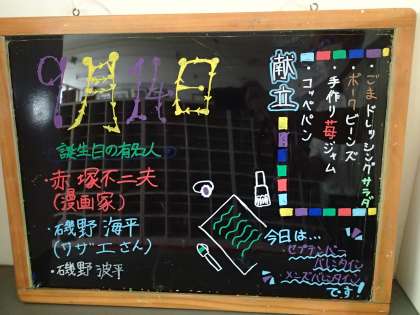 9月14日
誕生日の有名人
・赤塚不二夫
(漫画家)
・磯野 海平
(サザエさん)
・磯野 波平
献立
・ごまドレッシングサラダ
・ポークビーンズ
・手作り苺ジャム
・コッペパン
今日は…
セプテンバー
バレンタイン
メンズバレンタイン
です!